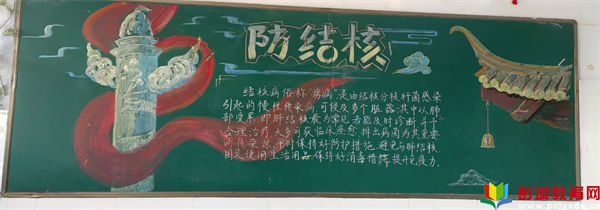 防结核
结核病俗称"痨病",是由结核分枝杆菌感染
引起的慢性传染病,可侵及多个脏器,其中以肺
部受累即肺结核最为常见,若能及时诊断,并予
合理治疗,大多可获临床痊愈,排出病菌为其重要
的传染源,平时保持好防护措施,避免与肺结核
使用生活用品,保持好消毒措施,提升免疫力.
彭城教育网
www.pcjyedu.cn